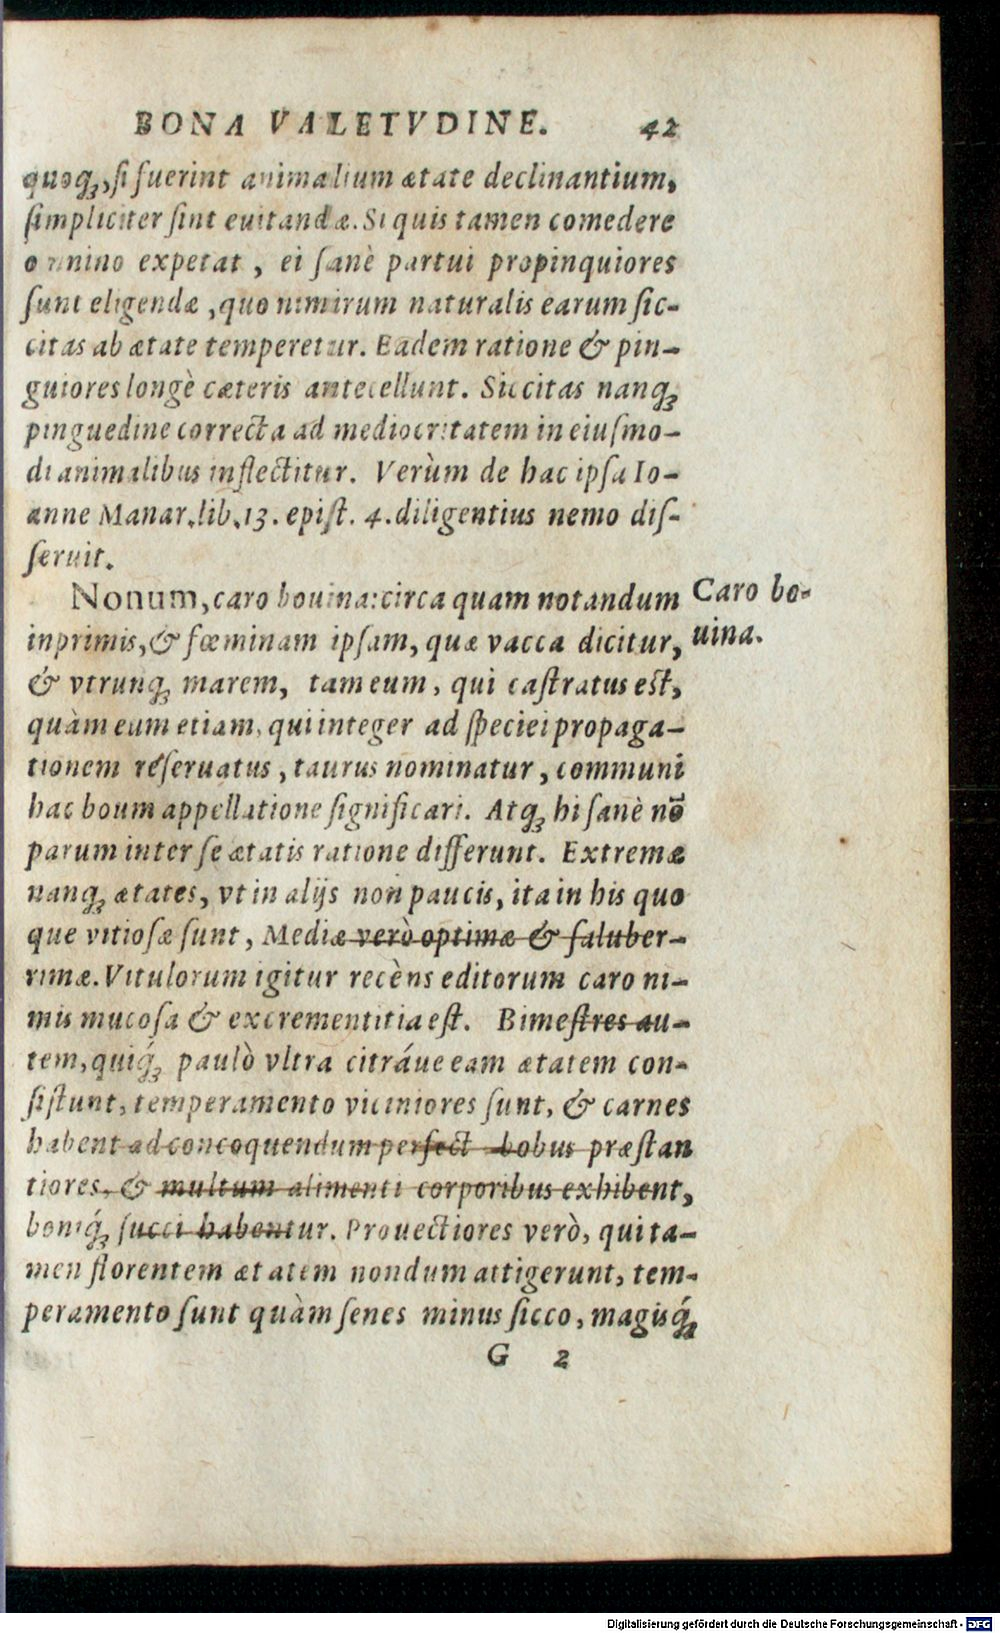 BONA VALETVDINE. 42
quoqꝫ, si fuerint animalium ætate declinantium,
simpliciter sint euitandæ. Si quis tamen comedere
omnino expetat, ei sanè partui propinquiores
sunt eligendæ, quo nimirum naturalis earum sic-
citas ab ætate temperetur. Eadem ratione & pin-
guiores longè cæteris antecellunt. Siccitas nanqꝫ
pinguedine correcta ad mediocritatem in eiusmo-
di animalibus inflectitur. Verùm de hac ipsa Io-
anne Manar. lib. 13. epist. 4. diligentius nemo dis-
seruit.
Nonum, caro bouina: circa quam notandum
Caro bo-
inprimis, & fœminam ipsam, quæ vacca dicitur,
uina.
& vtrunqꝫ marem, tam eum, qui castratus est,
quàm eum etiam, qui integer ad speciei propaga-
tionem reseruatus, taurus nominatur, communi
hac boum appellatione significari. Atqꝫ hi sanè nō
parum inter se ætatis ratione differunt. Extremæ
nanqꝫ ætates, vt in alijs non paucis, ita in his quo
que vitiosæ sunt, Mediæ verò optimæ & saluber-
rimæ. Vitulorum igitur recèns editorum caro ni-
mis mucosa & excrementitia est. Bimestres au-
tem, quiq́ꝫ paulò vltra citráue eam ætatem con-
sistunt, temperamento viciniores sunt, & carnes
habent ad concoquendum perfect bobus præstan
tiores, & multum alimenti corporibus exhibent,
boniq́ꝫ succi habentur. Prouectiores verò, qui ta-
men florentem ætatem nondum attigerunt, tem-
peramento sunt quàm senes minus sicco, magisq́ꝫ
G 2
Digitalisierung gefördert durch die Deutsche Forschungsgemeinschaft - DFG